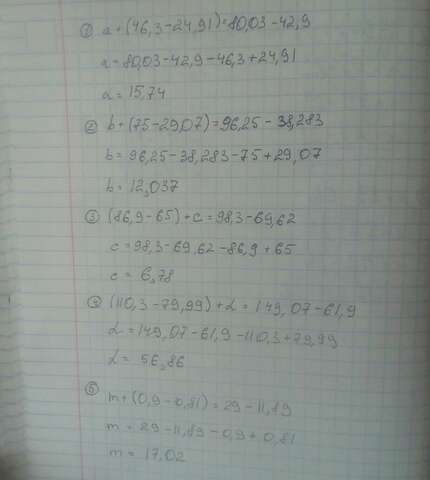 ① a+(46,3-24,91)=80,03-42,9
a=80,03-42,9-46,3+24,91
a=15,74
② b+(75-29,07)=96,25-38,283
b=96,25-38,283-75+29,07
b=12,037
③ (86,9-65)+c=98,3-69,62
c=98,3-69,62-86,9+65
c=6,78
④ (110,3-79,99)+d=149,07-61,9
d=149,07-61,9-110,3+79,99
d=56,86
⑤ m+(0,9-0,81)=29-11,89
m=29-11,89-0,9+0,81
m=17,02